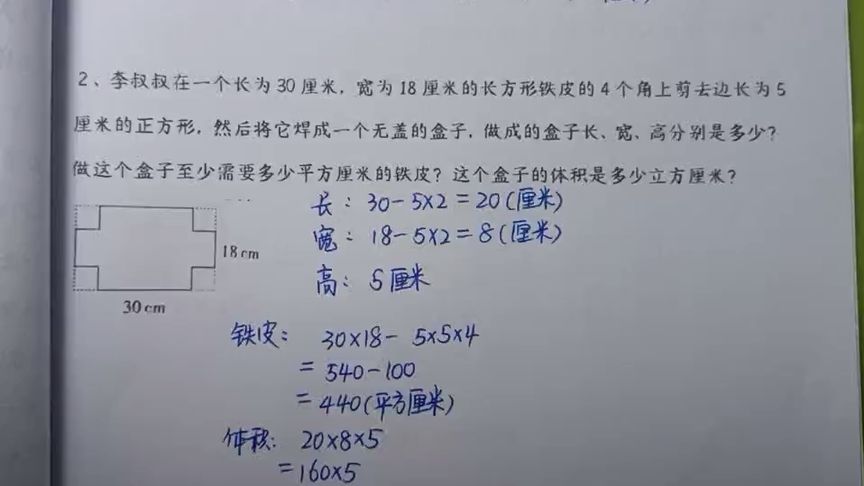 2、李叔叔在一个长为30厘米，宽为18厘米的长方形铁皮的4个角上剪去边长为5
厘米的正方形，然后将它焊成一个无盖的盒子，做成的盒子长、宽、高分别是多少？
做这个盒子至少需要多少平方厘米的铁皮？这个盒子的体积是多少立方厘米？
长：30-5×2=20(厘米)
宽：18-5×2=8(厘米)
18cm
高：5厘米
30cm
铁皮：30×18-5×5×4
=540-100
=440(平方厘米)
体积：20×8×5
=160×5